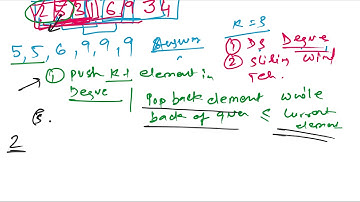 2 3 1 6 9 3 4
K=3
5, 5, 6, 9, 9, 9 Answer
① DS Deque
② Sliding Wind Tech.
① push K+1 element in Deque
pop back element while
back of queue ≤ current element
2